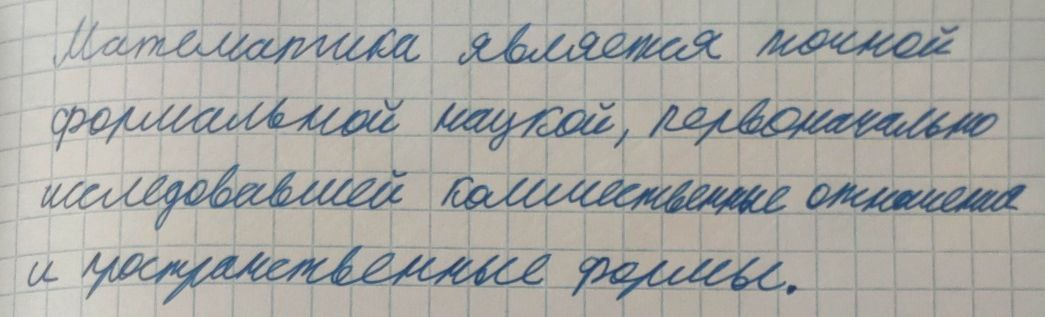 Математика является точной
формальной наукой, первоначально
исследовавшей количественные отношения
и пространственные формы.